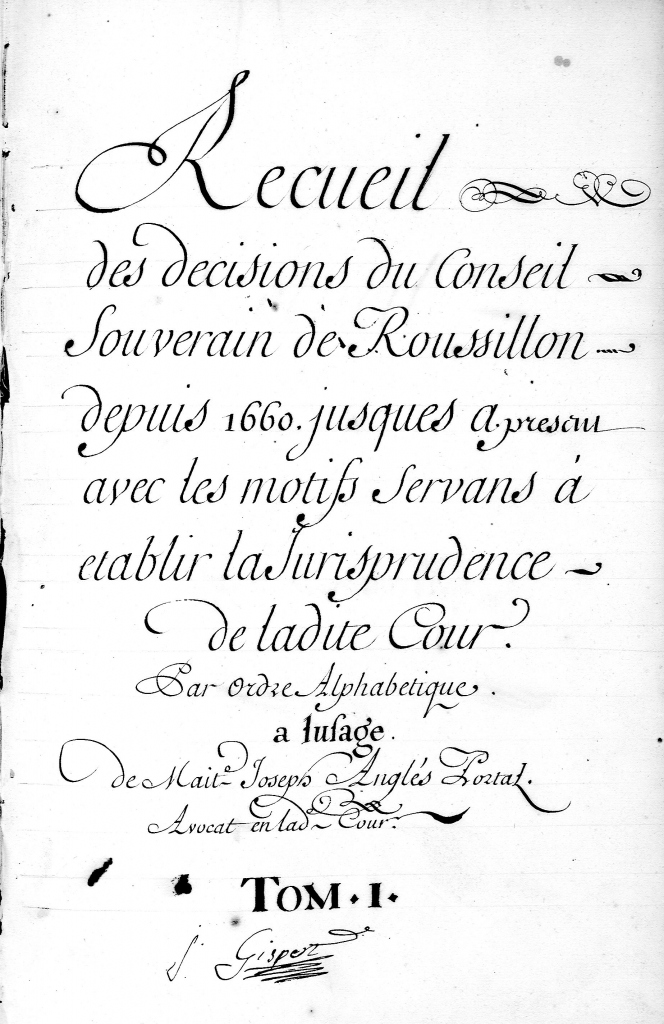 Recueil
des decisions du Conseil
Souverain de Roussillon
depuis 1660. jusques a present
avec les motifs servans à
etablir la Jurisprudence
de ladite Cour.
Par Ordre Alphabetique.
a lusage.
de Mait.e Joseph Anglés Portal.
Avocat en lad.e Cour.
TOM. I.
Gispert